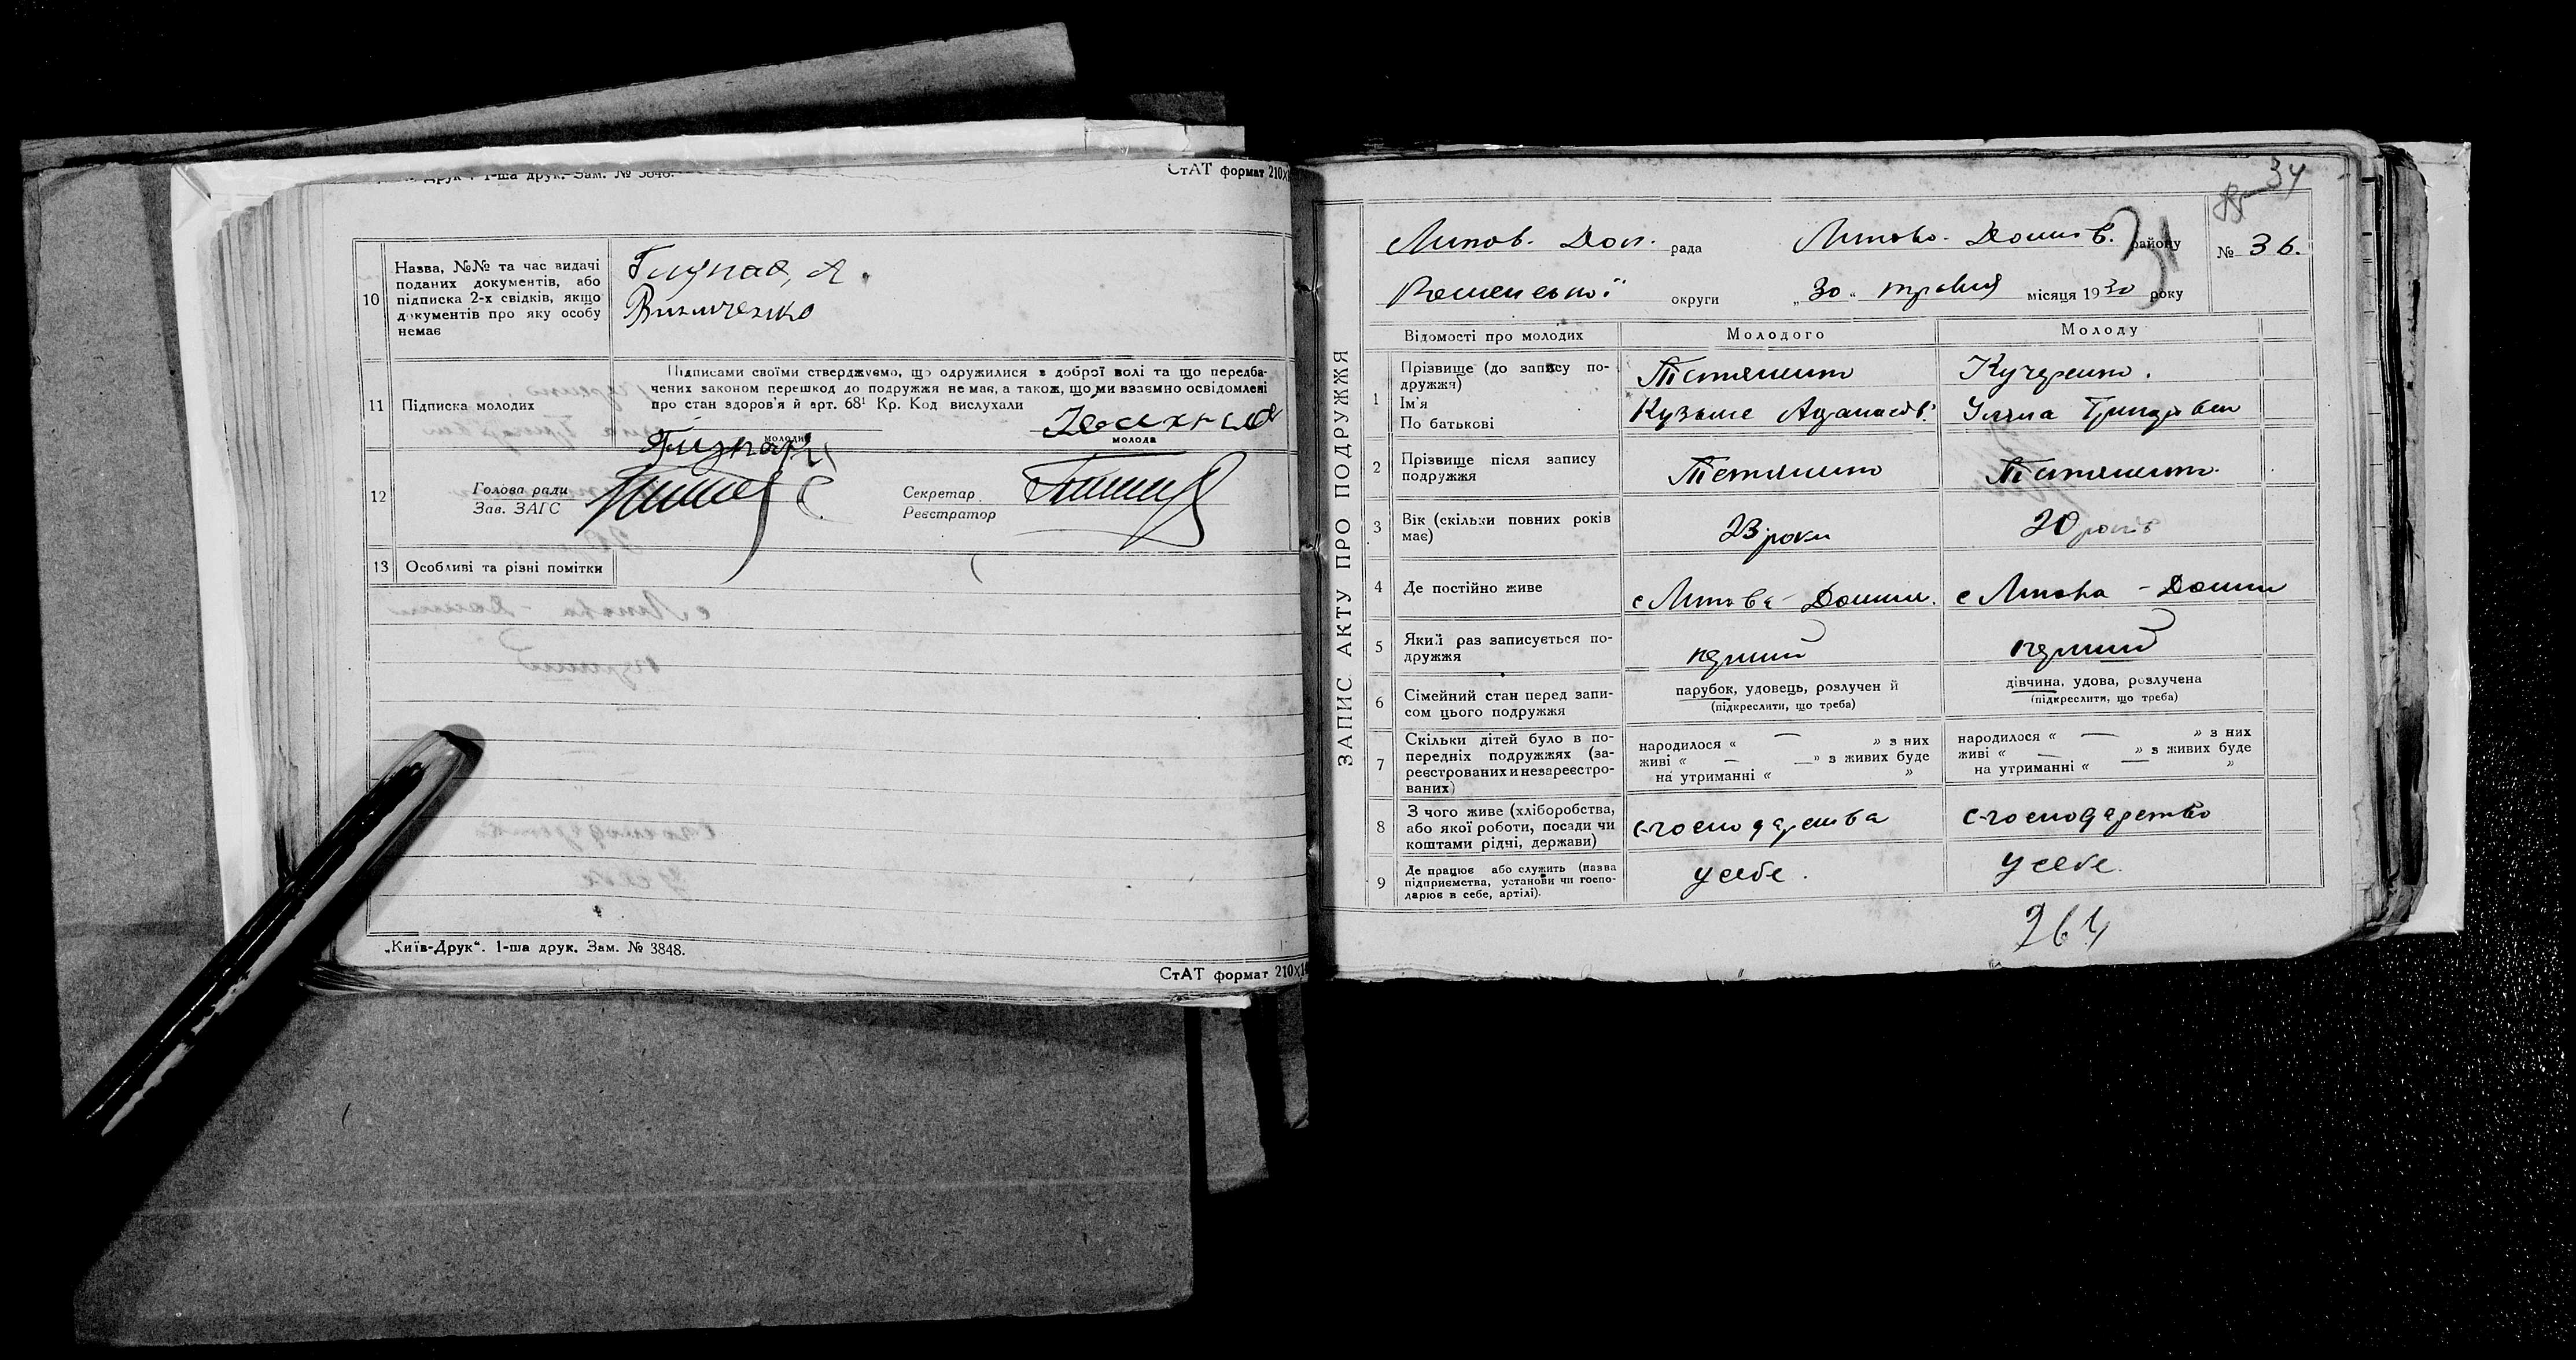 -Друк". 1-ша друк. Зам. № 3848.
СтАТ формат 210×1
10
Назва, №№ та час видачі
поданих документів, або
підписка 2-х свідків, якщо
документів про яку особу
немає
11
Підписка молодих
Підписами своїми стверджуємо, що одружилися з доброї волі та що передба-
чених законом перешкод до подружжя не має, а також, що ми взаємно освідомлені
про стан здоров'я й арт. 68¹ Кр. Код вислухали
молодий
молода
12
Голова ради
Зав. ЗАГС
Секретар
Реєстратор
13
Особливі та різні помітки
„Київ-Друк“. 1-ша друк. Зам. № 3848.
СтАТ формат 210×14
34
ЗАПИС АКТУ ПРО ПОДРУЖЖЯ
Липов. Дол. рада
Липово-Долинсв. району
№ 36.
округи
„30“ травня місяця 1930 року
31
Відомості про молодих
Молодого
Молоду
1
Прізвище (до запису по-
дружжя)
Ім'я
По батькові
Кучеренко.
Кузьма
2
Прізвище після запису
подружжя
3
Вік (скільки повних років
має)
23 роки
20 років
4
Де постійно живе
с Липова-Долина.
с Липова-Долина
5
Який раз записується по-
дружжя
перший
перший
6
Сімейний стан перед запи-
сом цього подружжя
парубок, удовець, розлучений
(підкреслити, що треба)
дівчина, удова, розлучена
(підкреслити, що треба)
7
Скільки дітей було в по-
передніх подружжях (за-
реєстрованих и незареєстро-
ваних)
народилося « — » з них
живі « — » з живих буде
на утриманні « »
народилося « — » з них
живі « — » з живих буде
на утриманні « »
8
З чого живе (хліборобства,
або якої роботи, посади чи
коштами рідні, держави)
с-господарства
с-господарство
9
Де працює або служить (назва
підприємства, установи чи госпо-
дарює в себе, артілі).
у себе.
у себе.
264